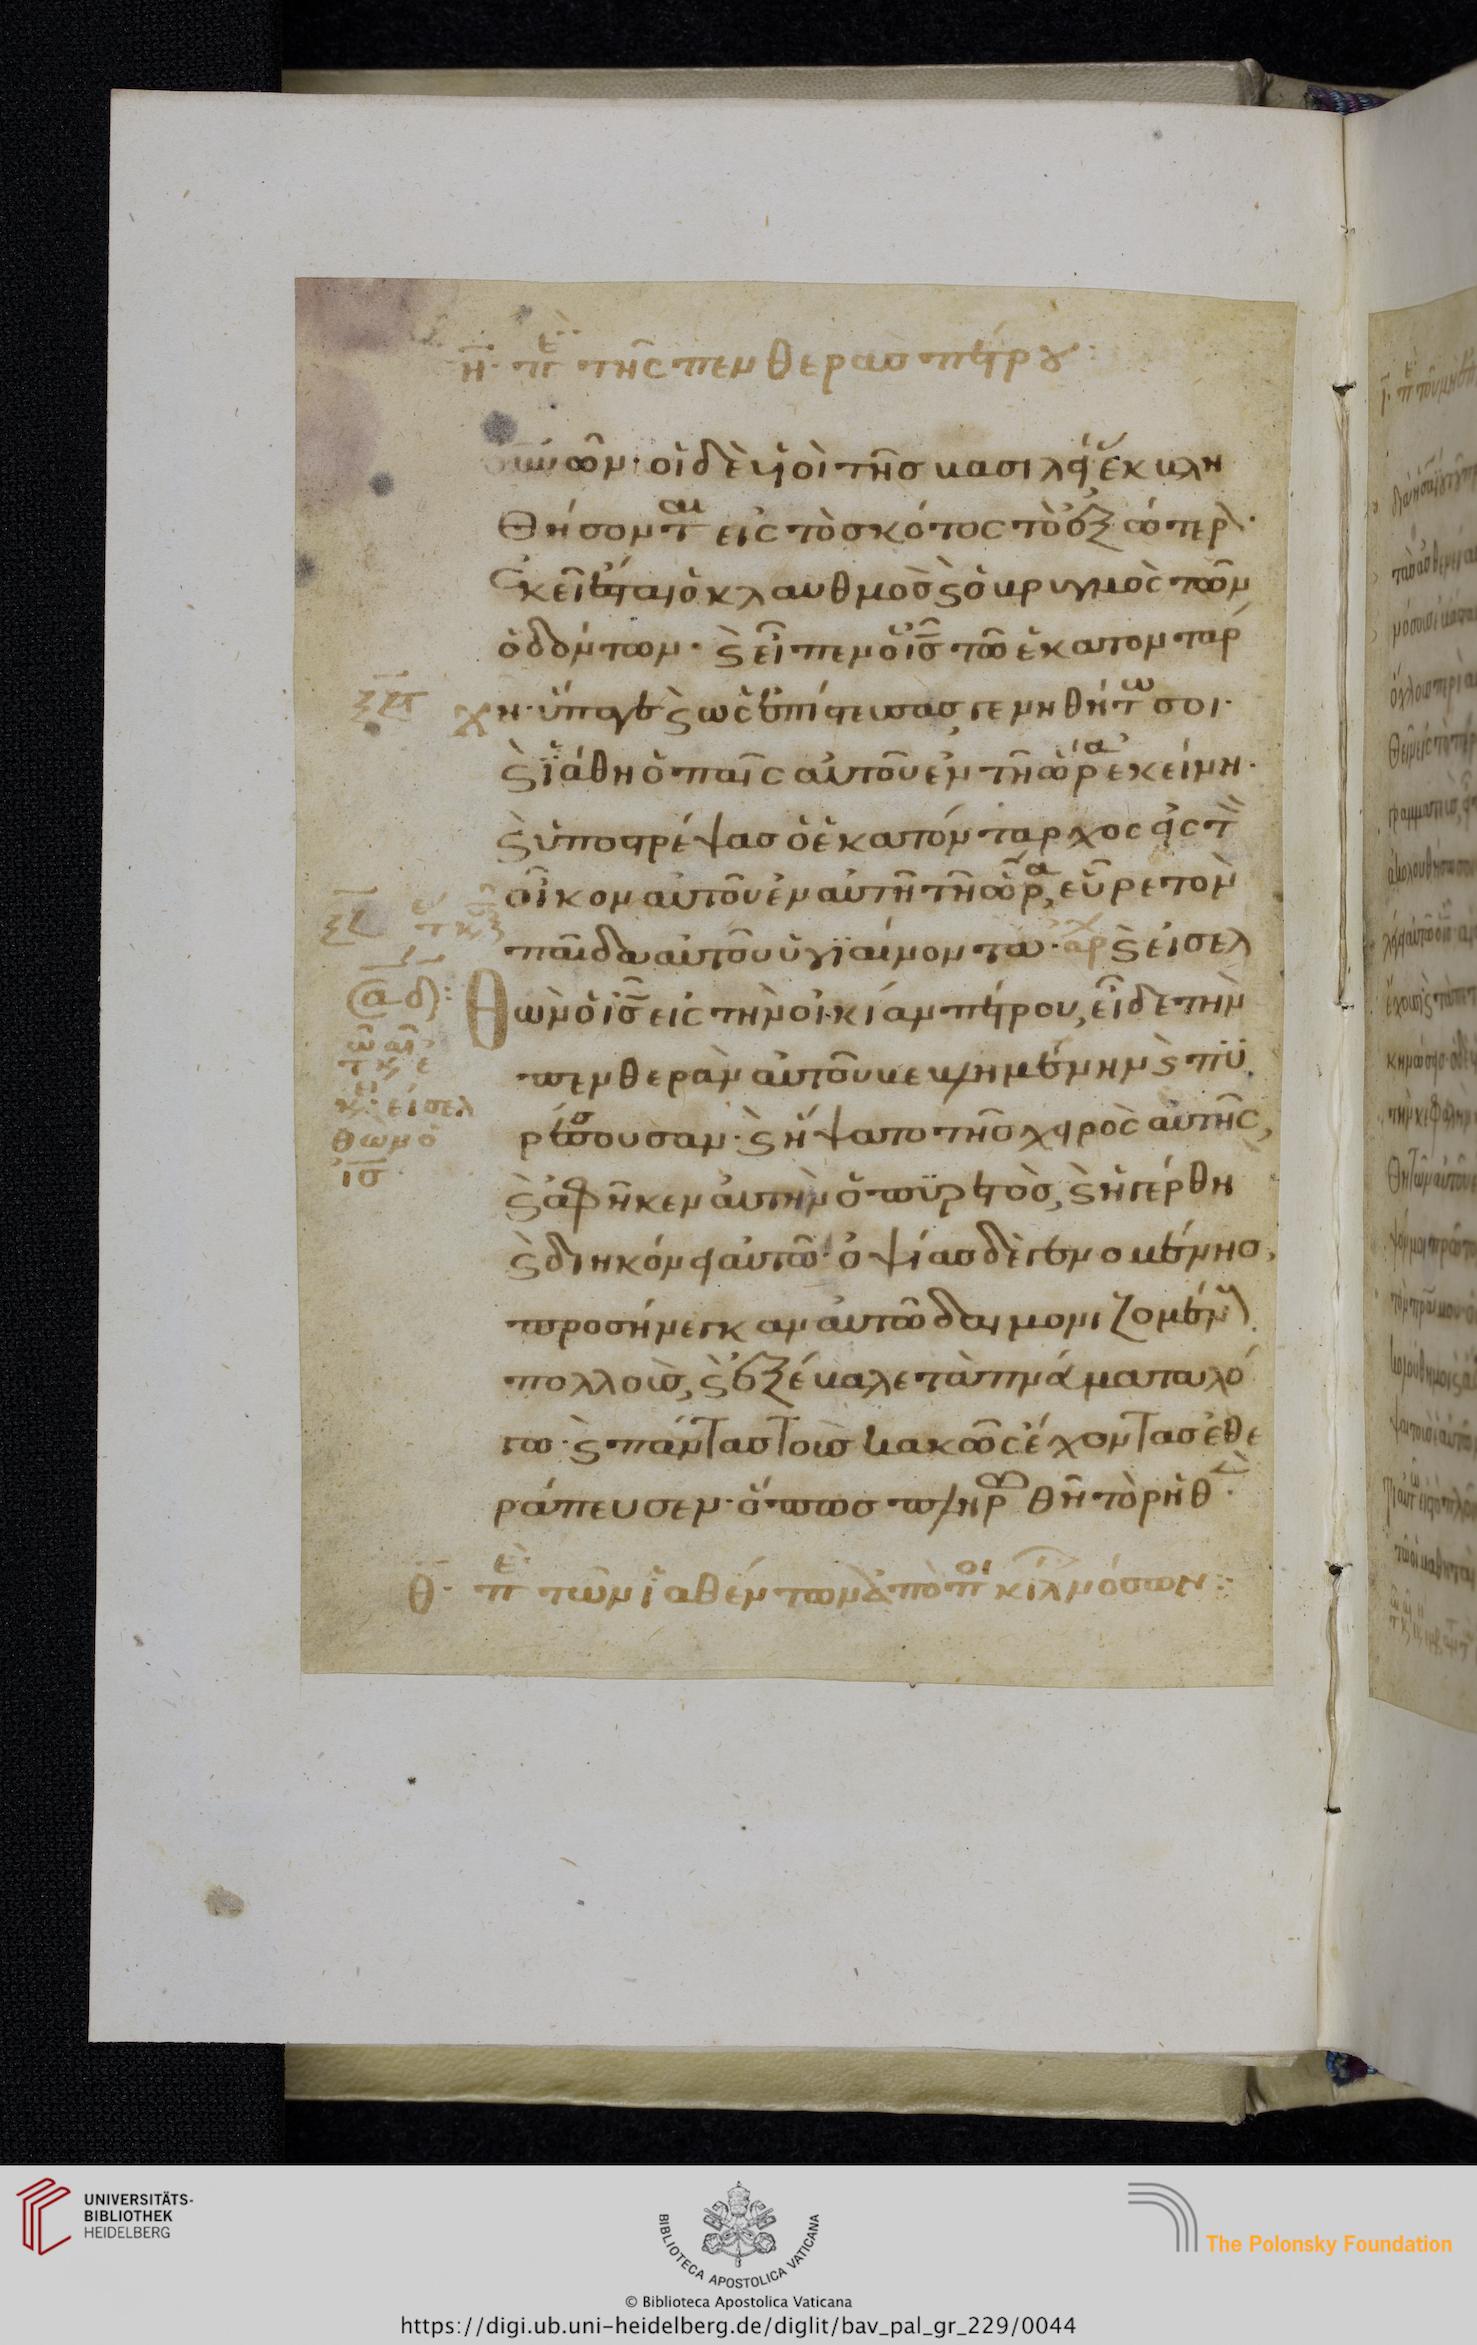 η̄· πε̅ρὶ τῆς πενθερᾶς πέτρου:
οὐνῶν· οἱ δὲ υἱοὶ τῆς βασιλεί(ας) ἐκβλη
θήσοντ(αι) εἰς τὸ σκότος τὸ ἐξώτερ(ον)·
ἐκεῖ ἔσται ὁ κλαυθμὸς ϗ ὁ βρυγμὸς τῶν
ὀδόντων· ϗ εἶπεν ὁ ι̅ς̅ τῶ ἑκατοντάρ
χη· ὕπαγε ϗ ὡς ἐπίστευσας, γενηθήτω σοι·
ϗ ἰάθη ὁ παῖς αὐτοῦ ἐν τῆ ὥρα ἐκείνη·
ϗ ὑποστρέψας ὁ ἑκατόνταρχος εἰς τ(ὸν)
οἶκον αὐτοῦ ἐν αὐτῆ τῆ ὥρα, εὗρε τὸν
παῖδα αὐτοῦ ὑγιαίνοντα· ἀρχ ϗ εἰσελ
θὼν ὁ ι̅ς̅ εἰς τὴν οἰκίαν πέτρου, εἶδε τὴν
πενθερὰν αὐτοῦ βεβλημένην ϗ πυ
ρέσσουσαν· ϗ ἥψατο τῆς χειρὸς αὐτῆς,
ϗ ἀφῆκεν αὐτὴν ὁ πυρετὸς, ϗ ἠγέρθη
ϗ διηκόνει αὐτῶ· ὀψίας δὲ γενομένης,
προσήνεγκαν αὐτῶ δαιμονιζομέν(ους)
πολλοὺς, ϗ ἐξέβαλε τὰ πνεύματα λό
γω· ϗ πάντας τοὺς κακῶς ἔχοντας ἐθε
ράπευσεν· ὅπως πληρωθῆ τὸ ῥηθὲν·
θ̄· πε̅ρὶ τῶν ἰαθέντων ἀπὸ ποικίλ(ων) νόσων:
(α δ):
κε εἰσελ
θὼν ὁ
ι̅ς̅·
UNIVERSITÄTS-
BIBLIOTHEK
HEIDELBERG
BIBLIOTECA APOSTOLICA VATICANA
The Polonsky Foundation
© Biblioteca Apostolica Vaticana
https://digi.ub.uni-heidelberg.de/diglit/bav_pal_gr_229/0044